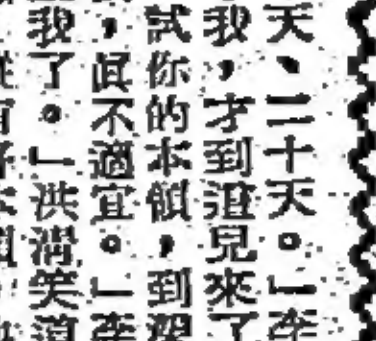 天、二十天。」
我，才到這兒來了
試你的本領，到
，眞不適宜。」
我了。」洪渭笑